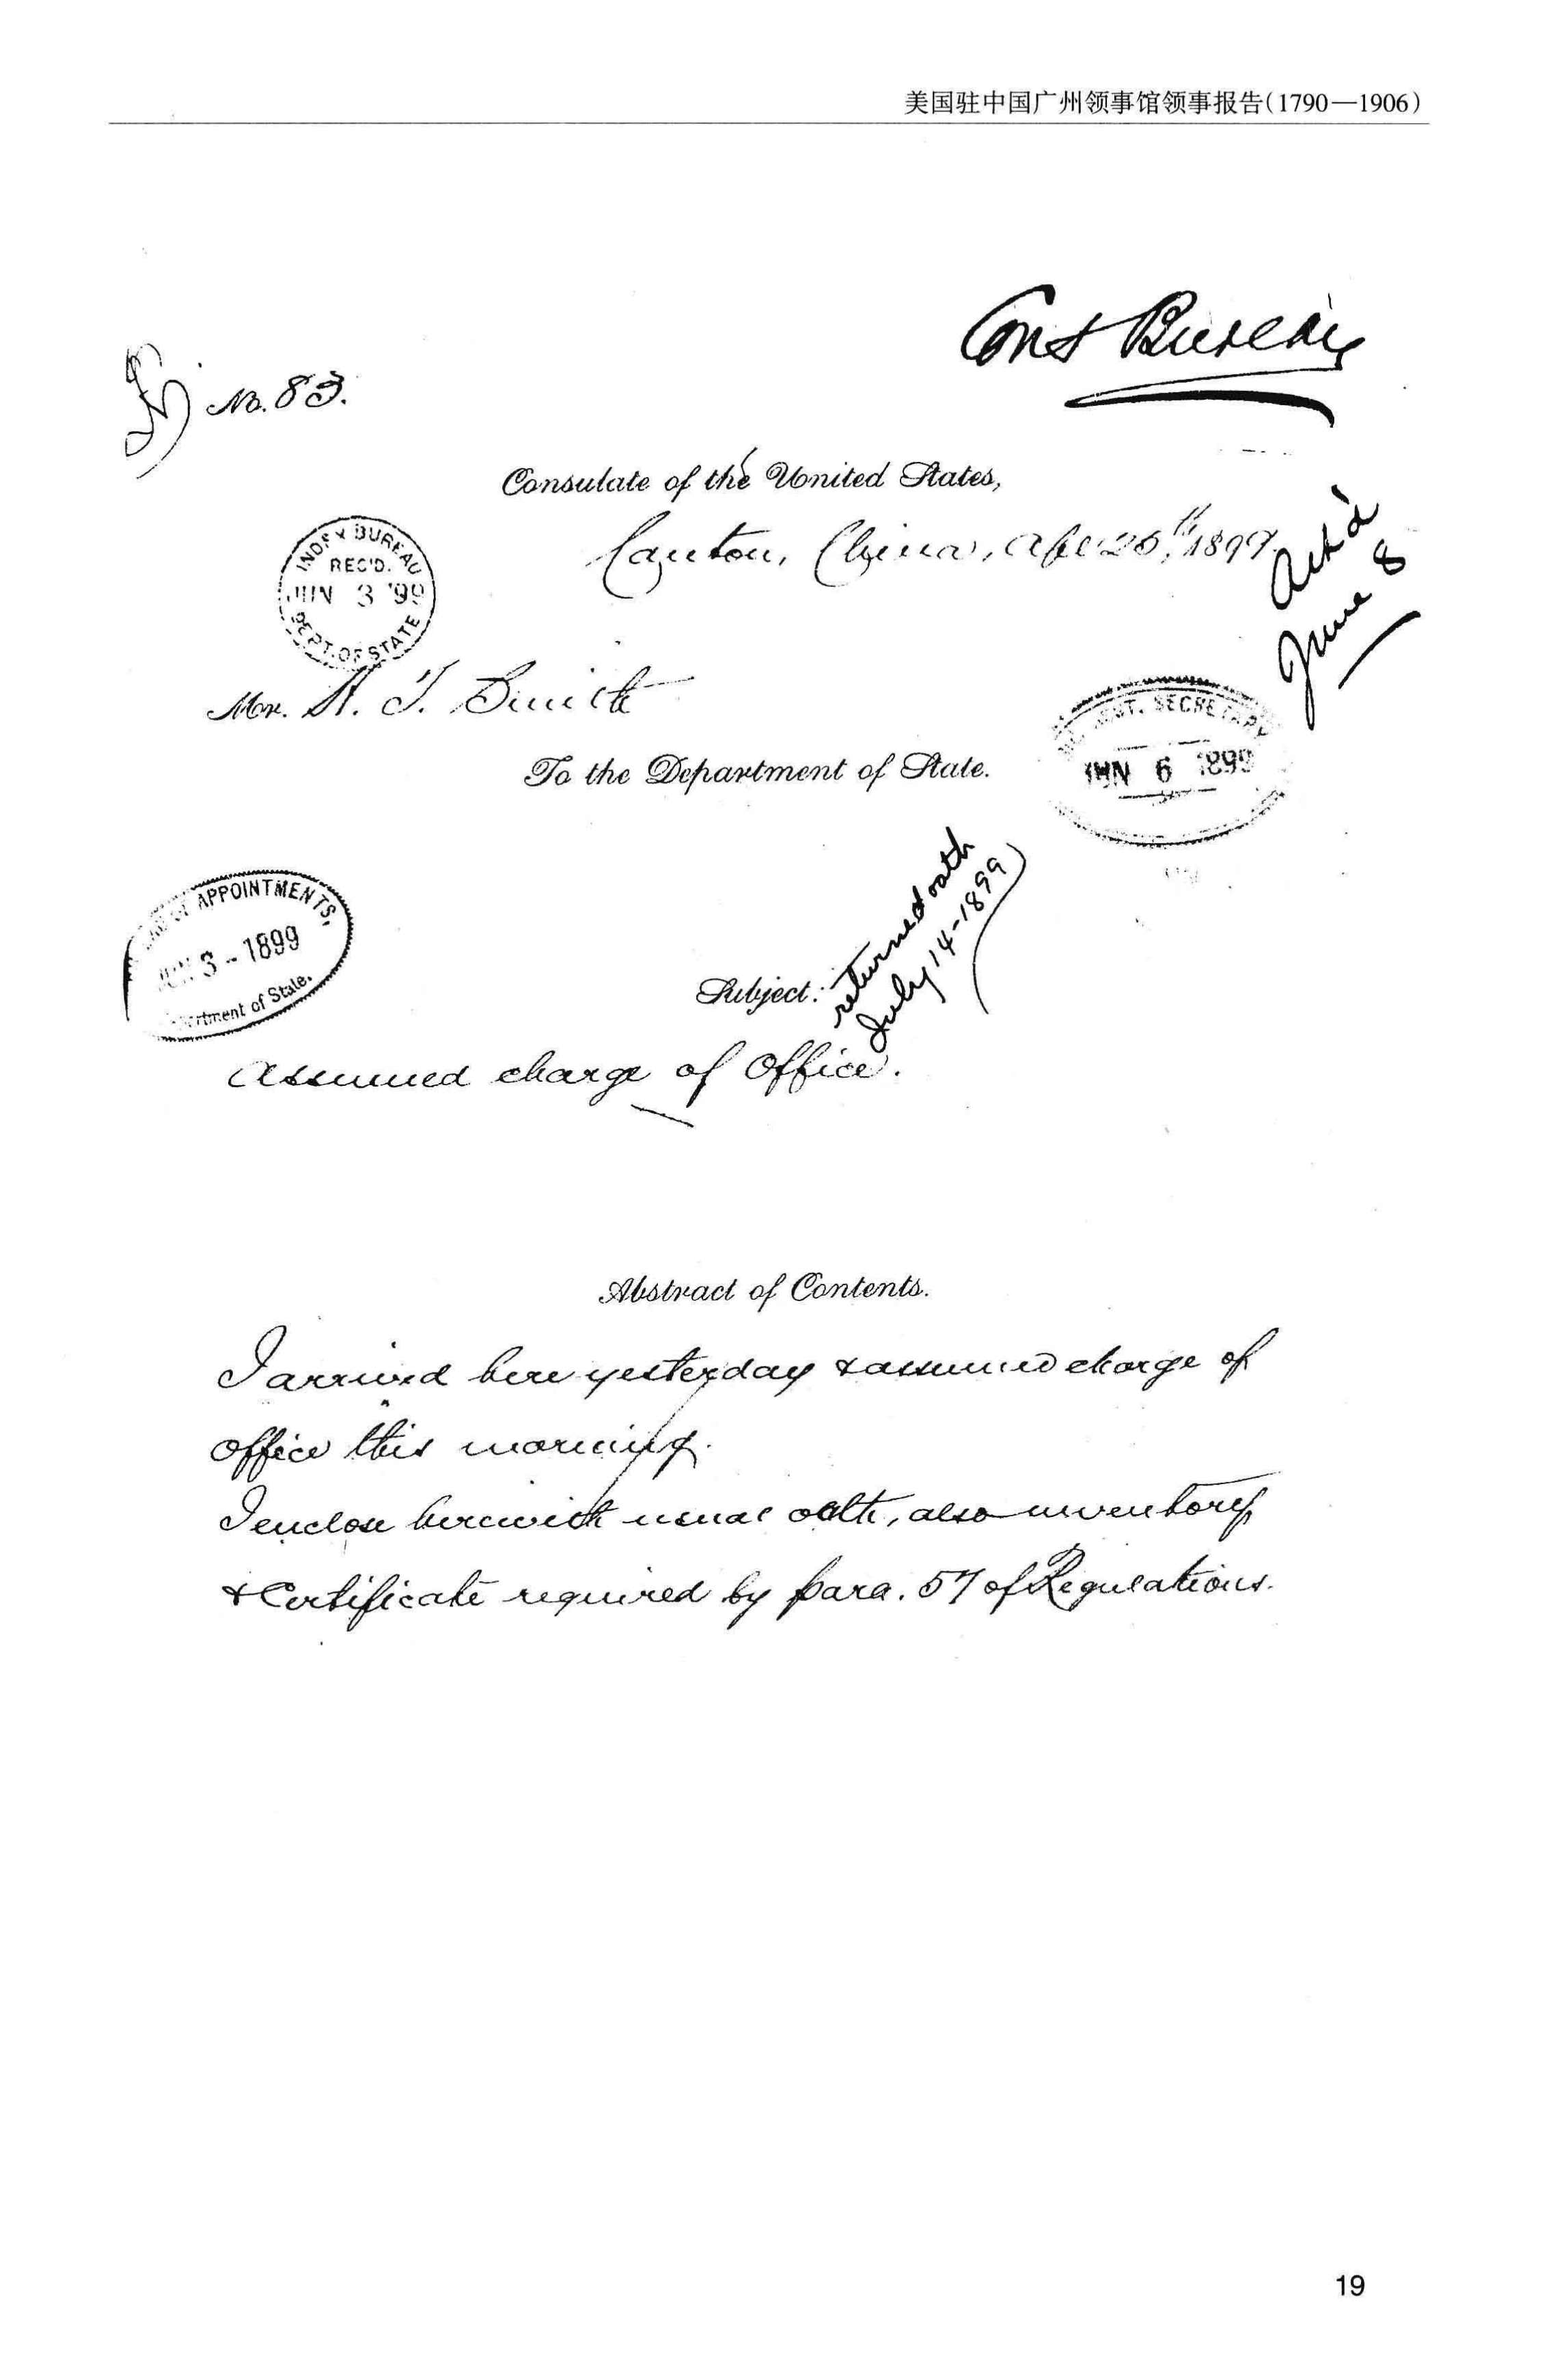 美国驻中国广州领事馆领事报告(1790—1906)
Cons Bureau
No. 83.
Consulate of the United States,
Canton, China, Apl 25th, 1899
Ack'd
June 8
INDEX BUREAU
REC'D.
JUN 3 '99
DEPT. OF STATE
Mr. S. L. Smith
To the Department of State.
ASST. SECRETARY
JUN 6 1899
APPOINTMENTS,
3 - 1899
Department of State.
returned oath
July 14-1899
Subject:
Assumed charge of Office.
Abstract of Contents.
I arrived here yesterday & assumed charge of
office this morning.
I enclose herewith usual oath, also inventory
& Certificate required by para. 57 of Regulations.
19